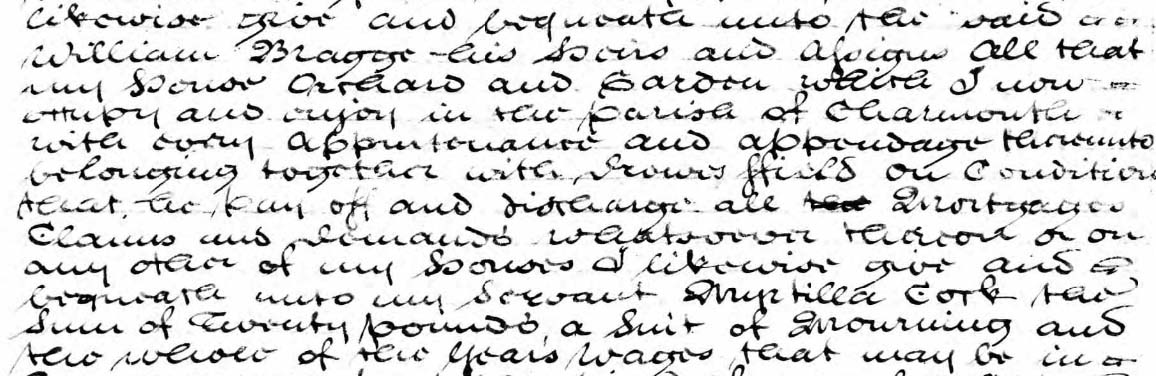 likewise give and bequeath unto the said
William Bragge his Heirs and Assigns All that
my House Orchard and Garden which I now
occupy and enjoy in the parish of Charmouth
with every Appurtenance and appendage thereunto
belonging together with Drowes ffield on Condition
that he pay off and discharge all the Mortgages
Claims and Demands whatsoever thereon or on
any other of my Houses I likewise give and
bequeath unto my Servant Myrtilla Cock the
Sum of Twenty pounds a Suit of Mourning and
the whole of the Years Wages that may be in